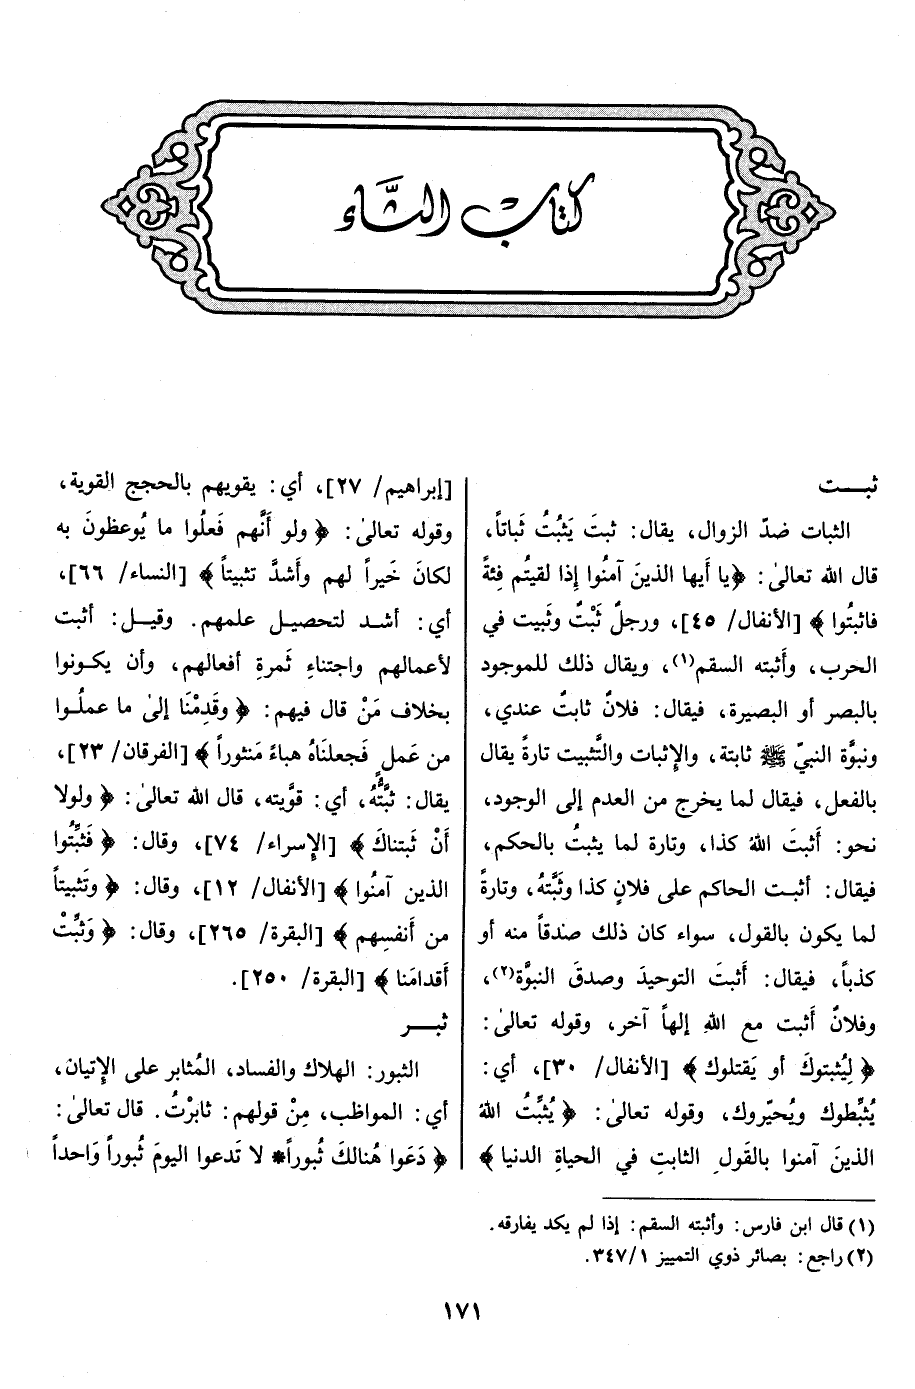 كتاب الثَّاء
ثبت
الثبات ضدّ الزوال، يقال: ثبتَ يَثبُتُ ثَباتاً،
قال الله تعالىٰ: ﴿يا أَيها الذينَ آمنُوا إِذا لقيتُم فِئةً
فاثبتُوا﴾ [الأنفال/ ٤٥]، ورجلٌ ثَبْتٌ وثَبيت في
الحرب، وأَثبته السقم(١)، ويقال ذلك للموجود
بالبصر أو البصيرة، فيقال: فلانٌ ثابتٌ عندي،
ونبوَّة النبيّ ﷺ ثابتة، والإِثبات والتَّثبيت تارةً يقال
بالفعل، فيقال لما يخرج من العدم إلى الوجود،
نحو: أَثبتَ اللهُ كذا، وتارة لما يثبتُ بالحكم،
فيقال: أثبت الحاكم على فلانٍ كذا وثَبَّتهُ، وتارةً
لما يكون بالقول، سواء كان ذلك صدقاً منه أو
كذباً، فيقال: أَثبتَ التوحيدَ وصدقَ النبوَّة(٢)،
وفلانٌ أَثبت مع اللهِ إلهاً آخر، وقوله تعالىٰ:
﴿لِيُثبتوكَ أو يَقتلوك﴾ [الأنفال/ ٣٠]، أي:
يُثبِّطوك ويُحيّروك، وقوله تعالىٰ: ﴿يُثبِّتُ اللهُ
الذينَ آمنوا بالقَولِ الثابتِ في الحياةِ الدنيا﴾
[إبراهيم/ ٢٧]، أي: يقويهم بالحجج القوية،
وقوله تعالىٰ: ﴿ولو أَنَّهم فَعلُوا ما يُوعظونَ به
لكانَ خَيراً لهم وأَشدَّ تثبيتاً﴾ [النساء/ ٦٦]،
أي: أشد لتحصيل علمهم. وقيل: أثبت
لأعمالهم واجتناءِ ثَمرةِ أفعالهم، وأن يكونوا
بخلاف مَنْ قال فيهم: ﴿وقَدِمْنَا إِلىٰ ما عملُوا
من عَملٍ فَجعلنَاهُ هباءً مَنثوراً﴾ [الفرقان/ ٢٣]،
يقال: ثبَّتُّهُ، أي: قوَّيته، قال الله تعالىٰ: ﴿ولولا
أَنْ ثَبتناكَ﴾ [الإِسراء/ ٧٤]، وقال: ﴿فَثبِّتُوا
الذين آمنُوا﴾ [الأنفال/ ١٢]، وقال: ﴿وتَثبيتاً
من أَنفسِهم﴾ [البقرة/ ٢٦٥]، وقال: ﴿وَثبِّتْ
أَقدامَنا﴾ [البقرة/ ٢٥٠].
ثبر
الثبور: الهلاك والفساد، المُثابر على الإِتيان،
أي: المواظب، مِنْ قولهم: ثابرْتُ. قال تعالىٰ:
﴿دَعَوا هُنالكَ ثُبوراً* لا تَدعوا اليومَ ثُبوراً وَاحداً
(١) قال ابن فارس: وأثبته السقم: إذا لم يكد يفارقه.
(٢) راجع: بصائر ذوي التمييز ٣٤٧/١.
١٧١